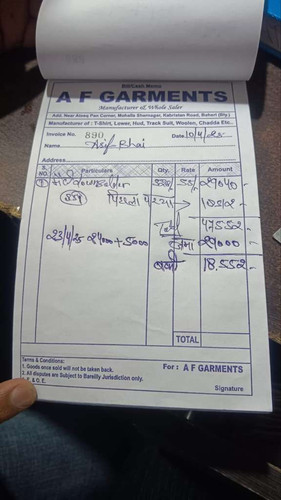 Bill/Cash Memo
A F GARMENTS
Manufacturer & Whole Saler
Add. Near Alweg Pan Corner, Mohalla Shernagar, Kabristan Road, Baheri (Bly.)
Manufacturer of : T-Shirt, Lower, Hud, Track Suit, Woolen, Chadda Etc..
Invoice No. 890 Date 10/4/25
Name Asif Bhai
Address
S. NO. Particulars Qty. Rate Amount
29040-
पिछला
47552-
23/4/25 24000+5000 जमा 29000-
बाकी 18552-
TOTAL
Terms & Conditions:
1. Goods once sold will not be taken back.
2. All disputes are Subject to Bareilly Juriediction only.
E. & O. E.
For : A F GARMENTS
Signature